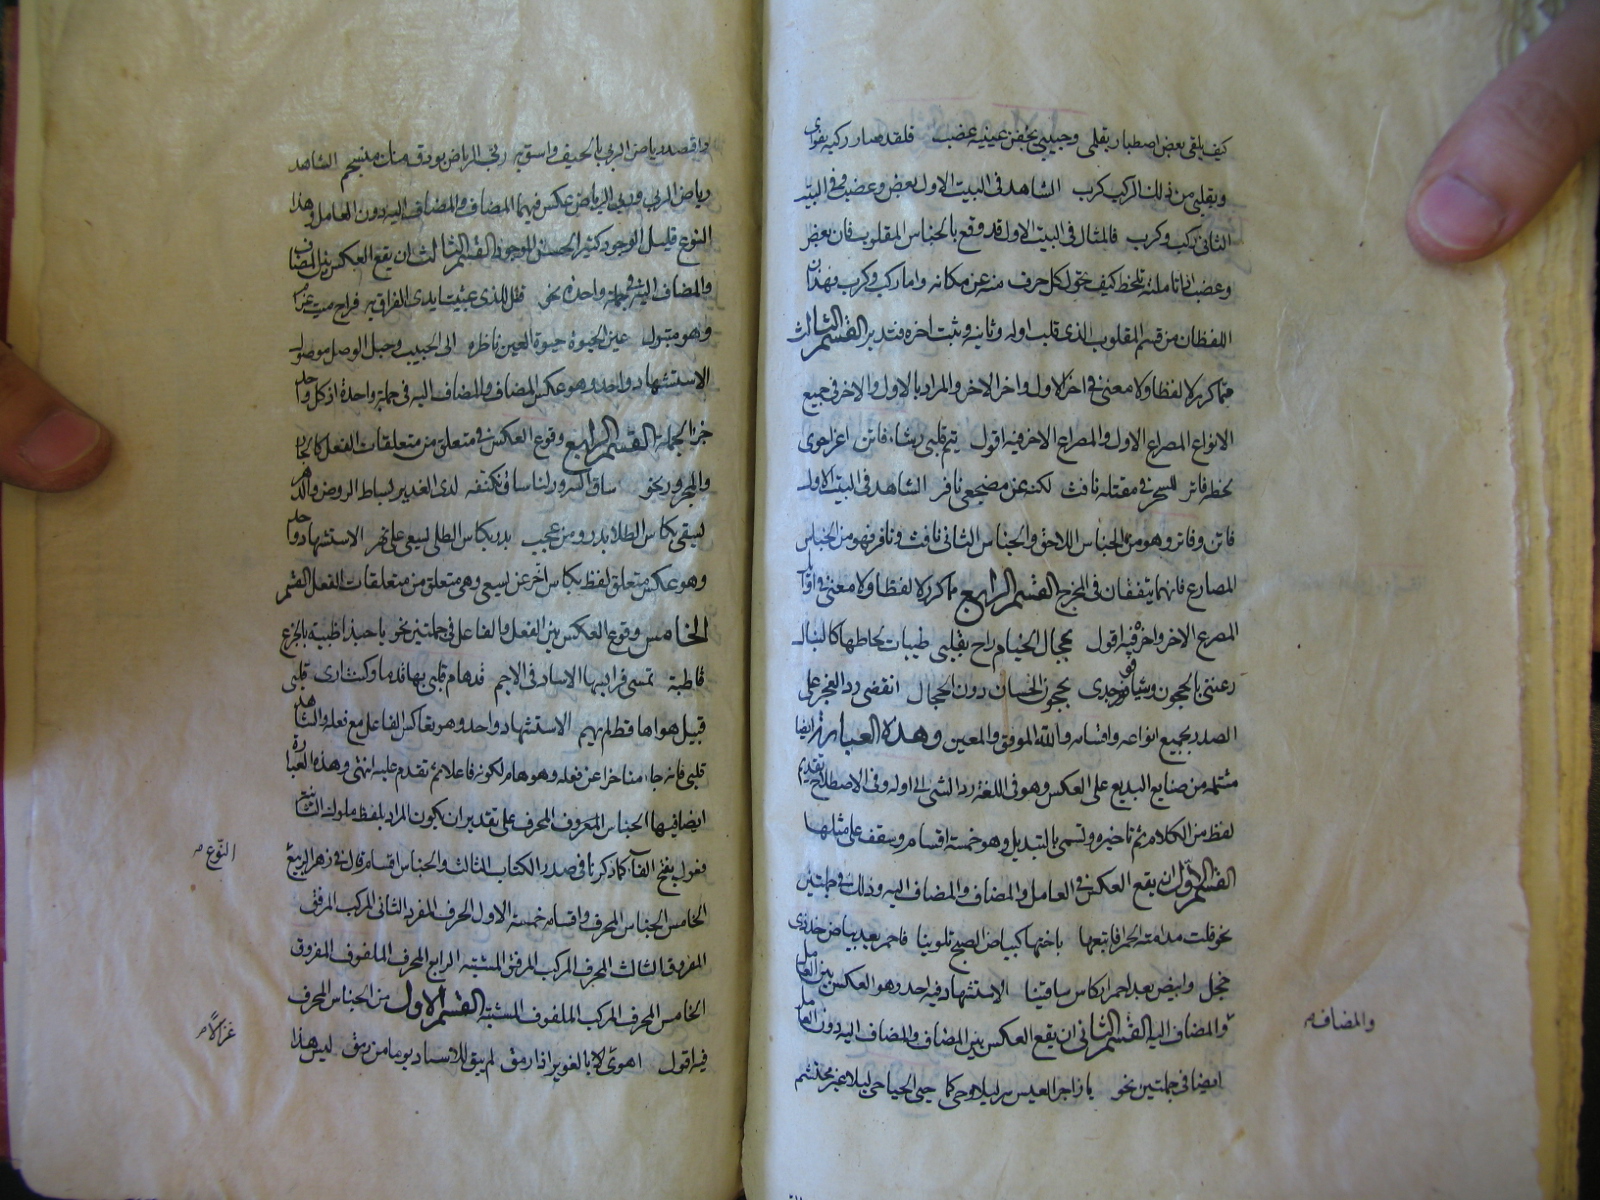 كيف يلقى بعض اصطبار بقلبى وحبيبى بجفن عينيه عضب فلقد صار ركبه بفوادى
وبقلبى من ذلك الركب كرب الشاهد فى البيت الاول بعض وعضب وفى البيت
الثانى ركب وكرب فالمثال فى البيت الاول قد وقع بالجناس المقلوب فان بعض
وعضب اذا تاملته تلحظ كيف تحول كل حرف منه عن مكانه واما ركب وكرب فهذان
اللفظان من قسم المقلوب الذى قلب اوله وثانيه وثبت اخره فتدبر القسم الثالث
مما كرر لا لفظا ولا معنى فى اخر الاول واخر الاخر والمراد بالاول والاخر فى جميع
الانواع المصراع الاول والمصراع الاخر فيه اقول تيم قلبى رشاء فاتن اغر احوى
لحظه فاتر للسحر فى مقلته نافث لكنه عن مضجعى نافر الشاهد فى البيت الاول
فاتن وفاتر وهو من الجناس اللاحق والجناس الثانى نافث ونافر فهو من الجناس
المضارع فانهما يتفقان فى المخرج القسم الرابع ما كرر لا لفظا ولا معنى فى اول
المصرع الاخر واخره فيه اقول بحجال الخيام راح بقلبى طيبات لحاظها كالنبال
رعتنى بالحجون وشافى وجدى بحجون الحسان دون الحجال انقضى رد العجز على
الصدر بجميع انواعه واقسامه والله الموفق والمعين وهذه العبارة ايضا
مشتمله من صنايع البديع على العكس وهو فى اللغة رد الشى الى اوله وفى الاصطلاح تقديم
لفظ من الكلام ثم تاخيره ويسمى بالتبديل وهو خمسة اقسام وستقف على مثلها
القسم الاول ان يقع العكس فى العامل والمضاف والمضاف اليه وذلك فى جملتين
نحو قلت مدامته الحمرا فاتبعها باختها كبياض الصبح تلوينا فاحمر بعد بياض خد ذى
خجل وابيض بعد احمرار كاس ساقينا الاستشهاد فيه احد وهو العكس بين العامل
والمضاف اليه القسم الثانى ان يقع العكس بين المضاف والمضاف اليه دون العامل
والمضاف
ايضا فى جملتين نحو يا زاجر العيس سر ليلا وحى كما حيى الحيا حى ليلا غير محتشم
واقصد رياض الربى بالخيف واسق به ربى الرياض بودق منك منسجم الشاهد
رياض الربى وربى الرياض عكس فيهما المضاف والمضاف اليه دون العامل وهذا
النوع قليل الوجود كثير الحسن للوجود القسم الثالث ان يقع العكس بين المضاف
والمضاف اليه فى جملة واحدة نحو قل للذى عبثت ايدى الفراق به فراح ميت غرام
وهو متبول عين الحيوة حيوة العين ناظره الى الحبيب وحبل الوصل موصول
الاستشهاد واحد وهو عكس المضاف والمضاف اليه فى جملة واحدة اذ كل واحد
جزء الجملة القسم الرابع وقوع العكس فى متعلق من متعلقات الفعل كالجار
والمجرور نحو ساق السرور لنا ساق نكنفه لدى الغدير بساط الروض والزهر
يسقى بكاس الطلا بدر ومن عجب بدر بكاس الطلى يسعى على قمر الاستشهاد واحد
وهو عكس متعلق لفظ بكاس اخر عن يسعى وهى متعلق من متعلقات الفعل القسم
الخامس وقوع العكس بين الفعل والفاعل فى جملتين نحو يا حبذا ظبية بالجزع
قاطبة تمسى فرايسها الاساد فى الاجم قد هام قلبى بها قدما وكنت ارى قلبى
قبيل هواها قط لم يهيم الاستشهاد واحد وهو تعاكس الفاعل مع فعله والشاهد
قلبى فانه جاء متاخرا عن فعله وهو هام لكونه فاعلا ثم تقدم عليه انتهى وهذه العبارة
ايضا فيها الجناس المعروف المحرف على تقدير ان يكون المراد بلفظ ملوك الثانية
فعول بفتح الفاء كما ذكرنا فى صدر الكتاب الثالث والجناس اقسام قال فى زهر الربيع
النوع
الخامس الجناس المحرف واقسامه خمسة الاول الحرف المفرد الثانى المركب المرفق
المفروق الثالث المحرف المركب المرفق المشتبه الرابع المحرف الملفوف المفروق
الخامس المحرف المركب الملفوف المشتبه القسم الاول من الجناس المحرف
غزالا
فيه اقول اهوى لا بالغوير اذا رمق لم يبق للاساد يوما من رمق ليس هذا